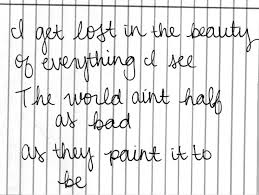 I get lost in the beauty
of everything I see
The world aint half
as bad
as they paint it to
be